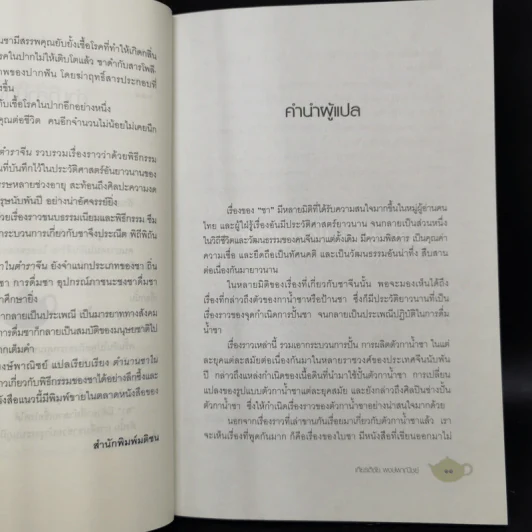 นชามีสรรพคุณยับยั้งเชื้อโรคที่ทำให้เกิดกลิ่น
โรคในปากไม่ให้เติบโตแล้ว ชาดำกับสารโพลี-
าพของปากฟัน โดยฆ่าฤทธิ์สารประกอบที่
งขึ้น
กับเชื้อโรคในปากอีกอย่างหนึ่ง
คุณต่อชีวิต คนอีกจำนวนไม่น้อยไม่เคยนึก
ตำราจีน รวบรวมเรื่องราวว่าด้วยพิธีกรรม
นที่บันทึกไว้ในประวัติศาสตร์อันยาวนานของ
รรษหลายช่วงอายุ สะท้อนถึงศิลปะความงด
รุษนับพันปี อย่างน่าอัศจรรย์ยิ่ง
วยเรื่องราวขนบธรรมเนียมและพิธีกรรม ซึม
กระบวนการเกี่ยวกับชาจึงประณีต พิถีพิถัน
าในตำราจีน ยังจำแนกประเภทของชา ถิ่น
ชา การดื่มชา อุปกรณ์ภาชนะชงชาดื่มชา
าศึกษายิ่ง
กลายเป็นประเพณี เป็นมารยาททางสังคม
การดื่มชาก็กลายเป็นสมบัติของมนุษยชาติไป
ากเต็มคำ
งษ์พาณิชย์ แปลเรียบเรียง ตำนานชาใน
าวเกี่ยวกับพิธีกรรมของชาได้อย่างลึกซึ้งและ
ังสือแนวนี้มีพิมพ์ขายในตลาดหนังสือของ
สำนักพิมพ์มติชน
คำนำผู้แปล
เรื่องของ "ชา" มีหลายมิติที่ได้รับความสนใจมากขึ้นในหมู่ผู้อ่านคน
ไทย และผู้ใฝ่รู้เรื่องอันมีประวัติศาสตร์ยาวนาน จนกลายเป็นส่วนหนึ่ง
ในวิถีชีวิตและวัฒนธรรมของคนจีนมาแต่ดั้งเดิม มีความพิสดาร เป็นคุณค่า
ความเชื่อ และยึดถือเป็นทัศนคติ และเป็นวัฒนธรรมอันน่าทึ่ง สืบสาน
ต่อเนื่องกันมายาวนาน
ในหลายมิติของเรื่องที่เกี่ยวกับชาจีนนั้น พอจะมองเห็นได้ถึง
เรื่องที่กล่าวถึงตัวของกาน้ำชาหรือป้านชา ซึ่งก็มีประวัติยาวนานที่เป็น
เรื่องของจุดกำเนิดการปั้นชา จนกลายเป็นประเพณีปฏิบัติในการดื่ม
น้ำชา
เรื่องราวเหล่านี้ รวมเอากระบวนการปั้น การผลิตตัวกาน้ำชา ในแต่
ละยุคแต่ละสมัยต่อเนื่องกันมาในหลายราชวงศ์ของประเทศจีนนับพัน
ปี กล่าวถึงแหล่งกำเนิดของเนื้อดินที่นำมาใช้ปั้นตัวกาน้ำชา การเปลี่ยน
แปลงของรูปแบบตัวกาน้ำชาแต่ละยุคสมัย และยังกล่าวถึงศิลปินช่างปั้น
ตัวกาน้ำชา ซึ่งให้กำเนิดเรื่องราวของตัวกาน้ำชาอย่างน่าสนใจมากด้วย
นอกจากเรื่องราวที่เล่าขานกันเรื่อยมาเกี่ยวกับตัวกาน้ำชาแล้ว เรา
จะเห็นเรื่องที่พูดกันมาก ก็คือเรื่องของใบชา มีหนังสือที่เขียนออกมาไม่
เกียรติชัย พงษ์พาณิชย์
๑๑